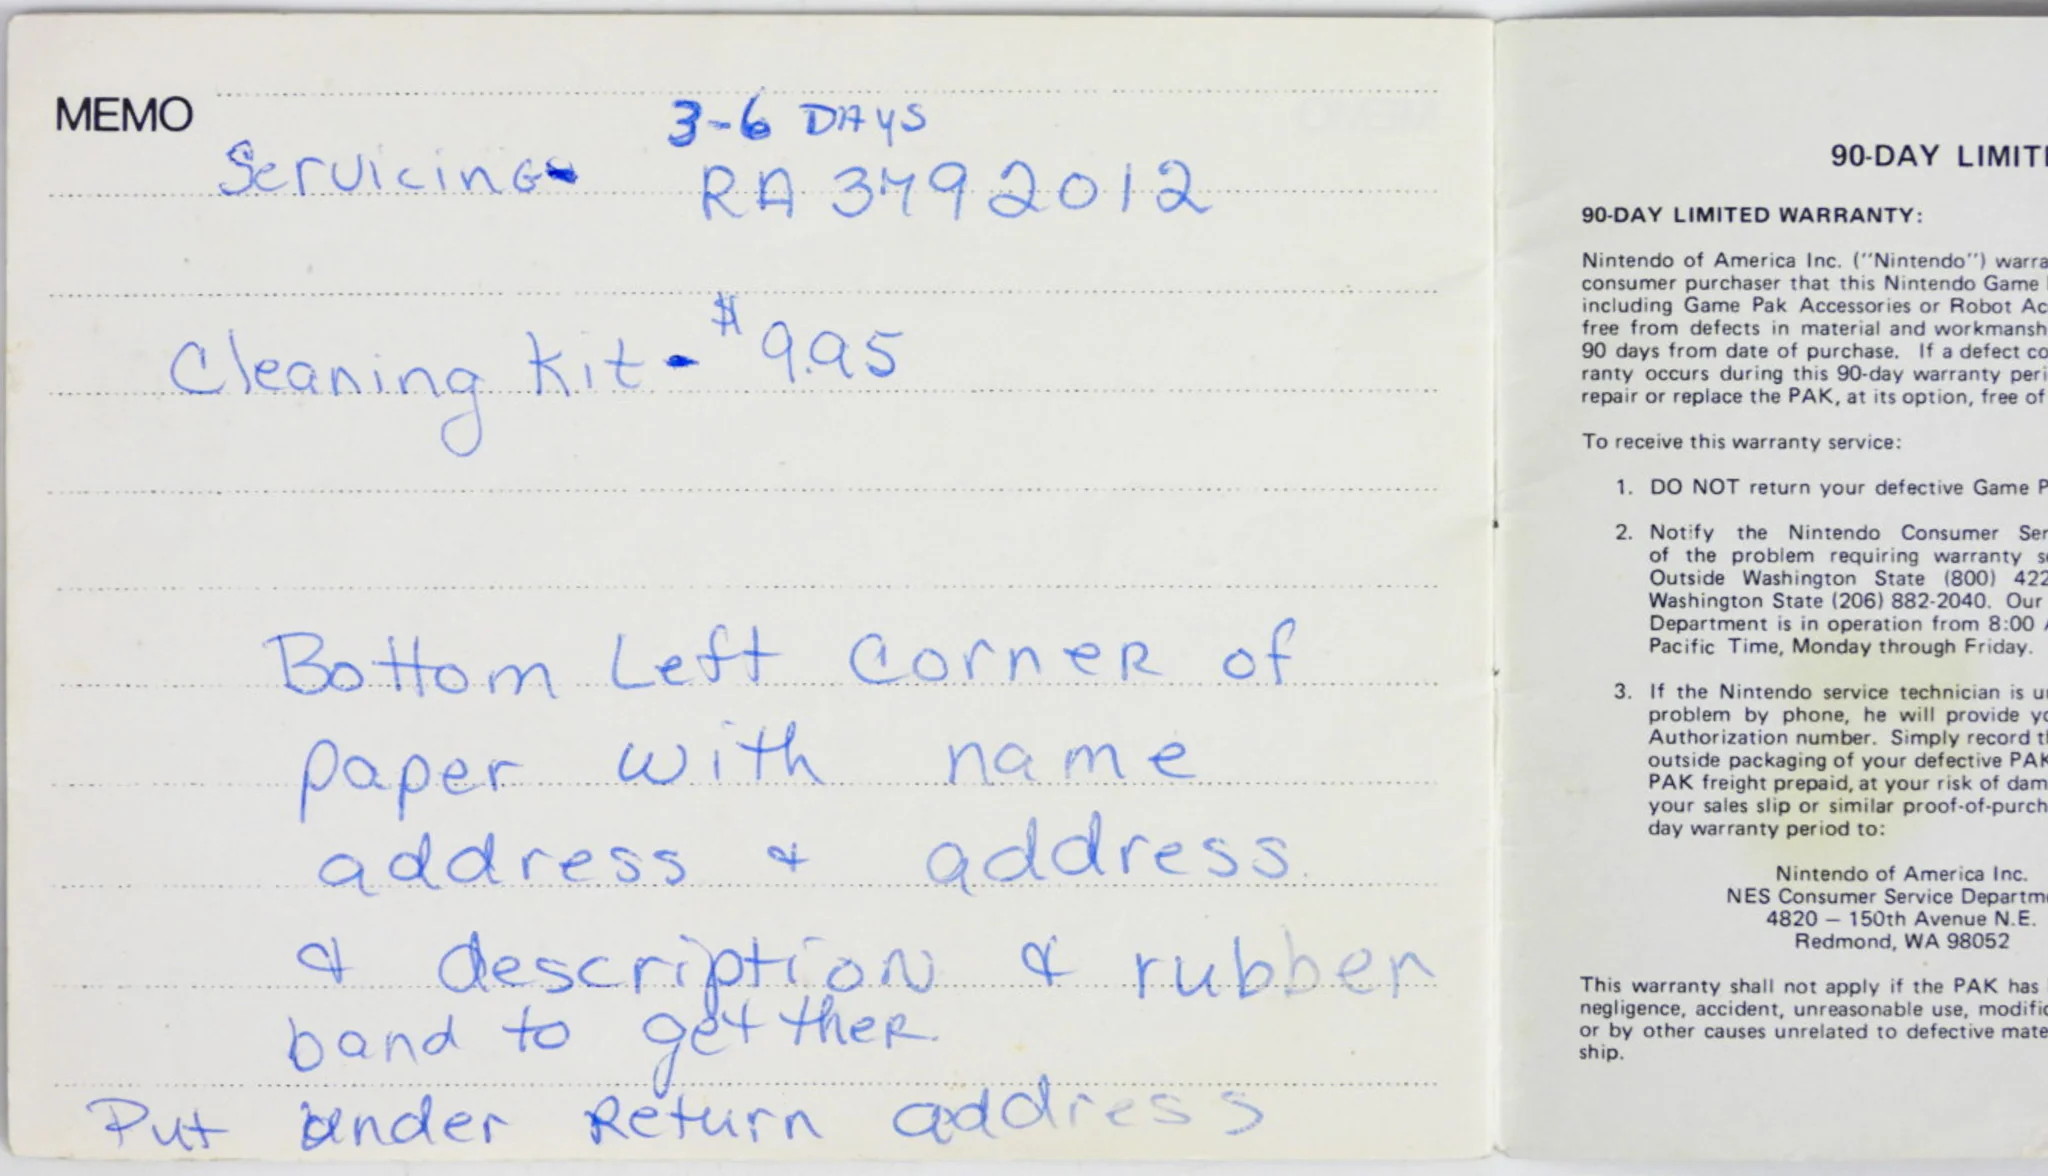 MEMO
3-6 DAYS
Servicing- RA 3792012
Cleaning Kit - $9.95
Bottom Left Corner of
paper with name
address & address
& description & rubber
band to getther
Put under Return address
90-DAY LIMIT
90-DAY LIMITED WARRANTY:
Nintendo of America Inc. ("Nintendo") warra
consumer purchaser that this Nintendo Game
including Game Pak Accessories or Robot Ac
free from defects in material and workmansh
90 days from date of purchase. If a defect co
ranty occurs during this 90-day warranty peri
repair or replace the PAK, at its option, free of
To receive this warranty service:
1. DO NOT return your defective Game P
2. Notify the Nintendo Consumer Ser
of the problem requiring warranty s
Outside Washington State (800) 422
Washington State (206) 882-2040. Our
Department is in operation from 8:00 A
Pacific Time, Monday through Friday.
3. If the Nintendo service technician is u
problem by phone, he will provide yo
Authorization number. Simply record t
outside packaging of your defective PAK
PAK freight prepaid, at your risk of dam
your sales slip or similar proof-of-purch
day warranty period to:
Nintendo of America Inc.
NES Consumer Service Departm
4820 – 150th Avenue N.E.
Redmond, WA 98052
This warranty shall not apply if the PAK has
negligence, accident, unreasonable use, modific
or by other causes unrelated to defective mate
ship.